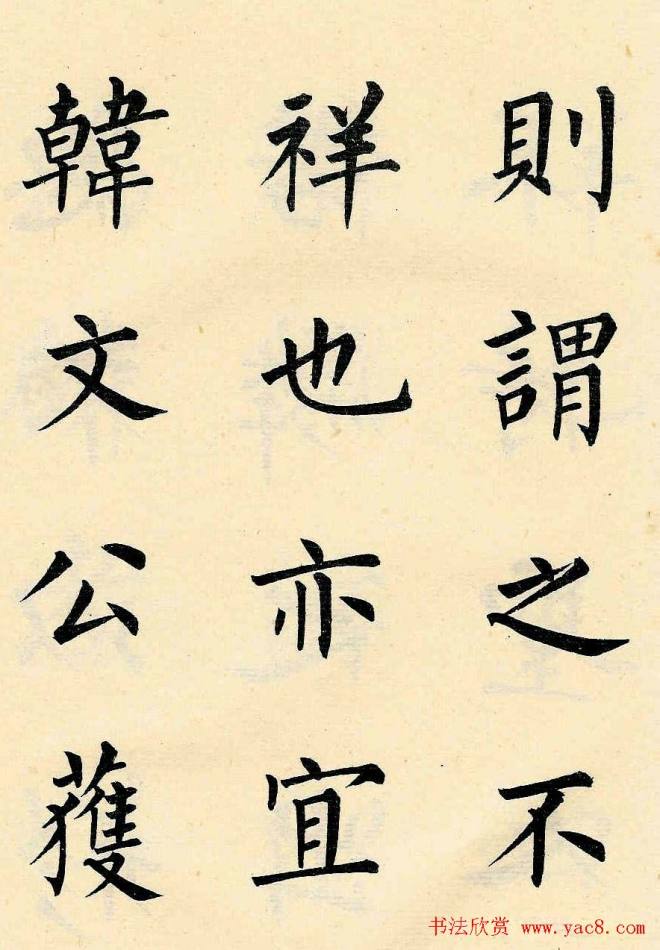 則謂之不
祥也亦宜
韓文公獲
书法欣赏 www.yac8.com